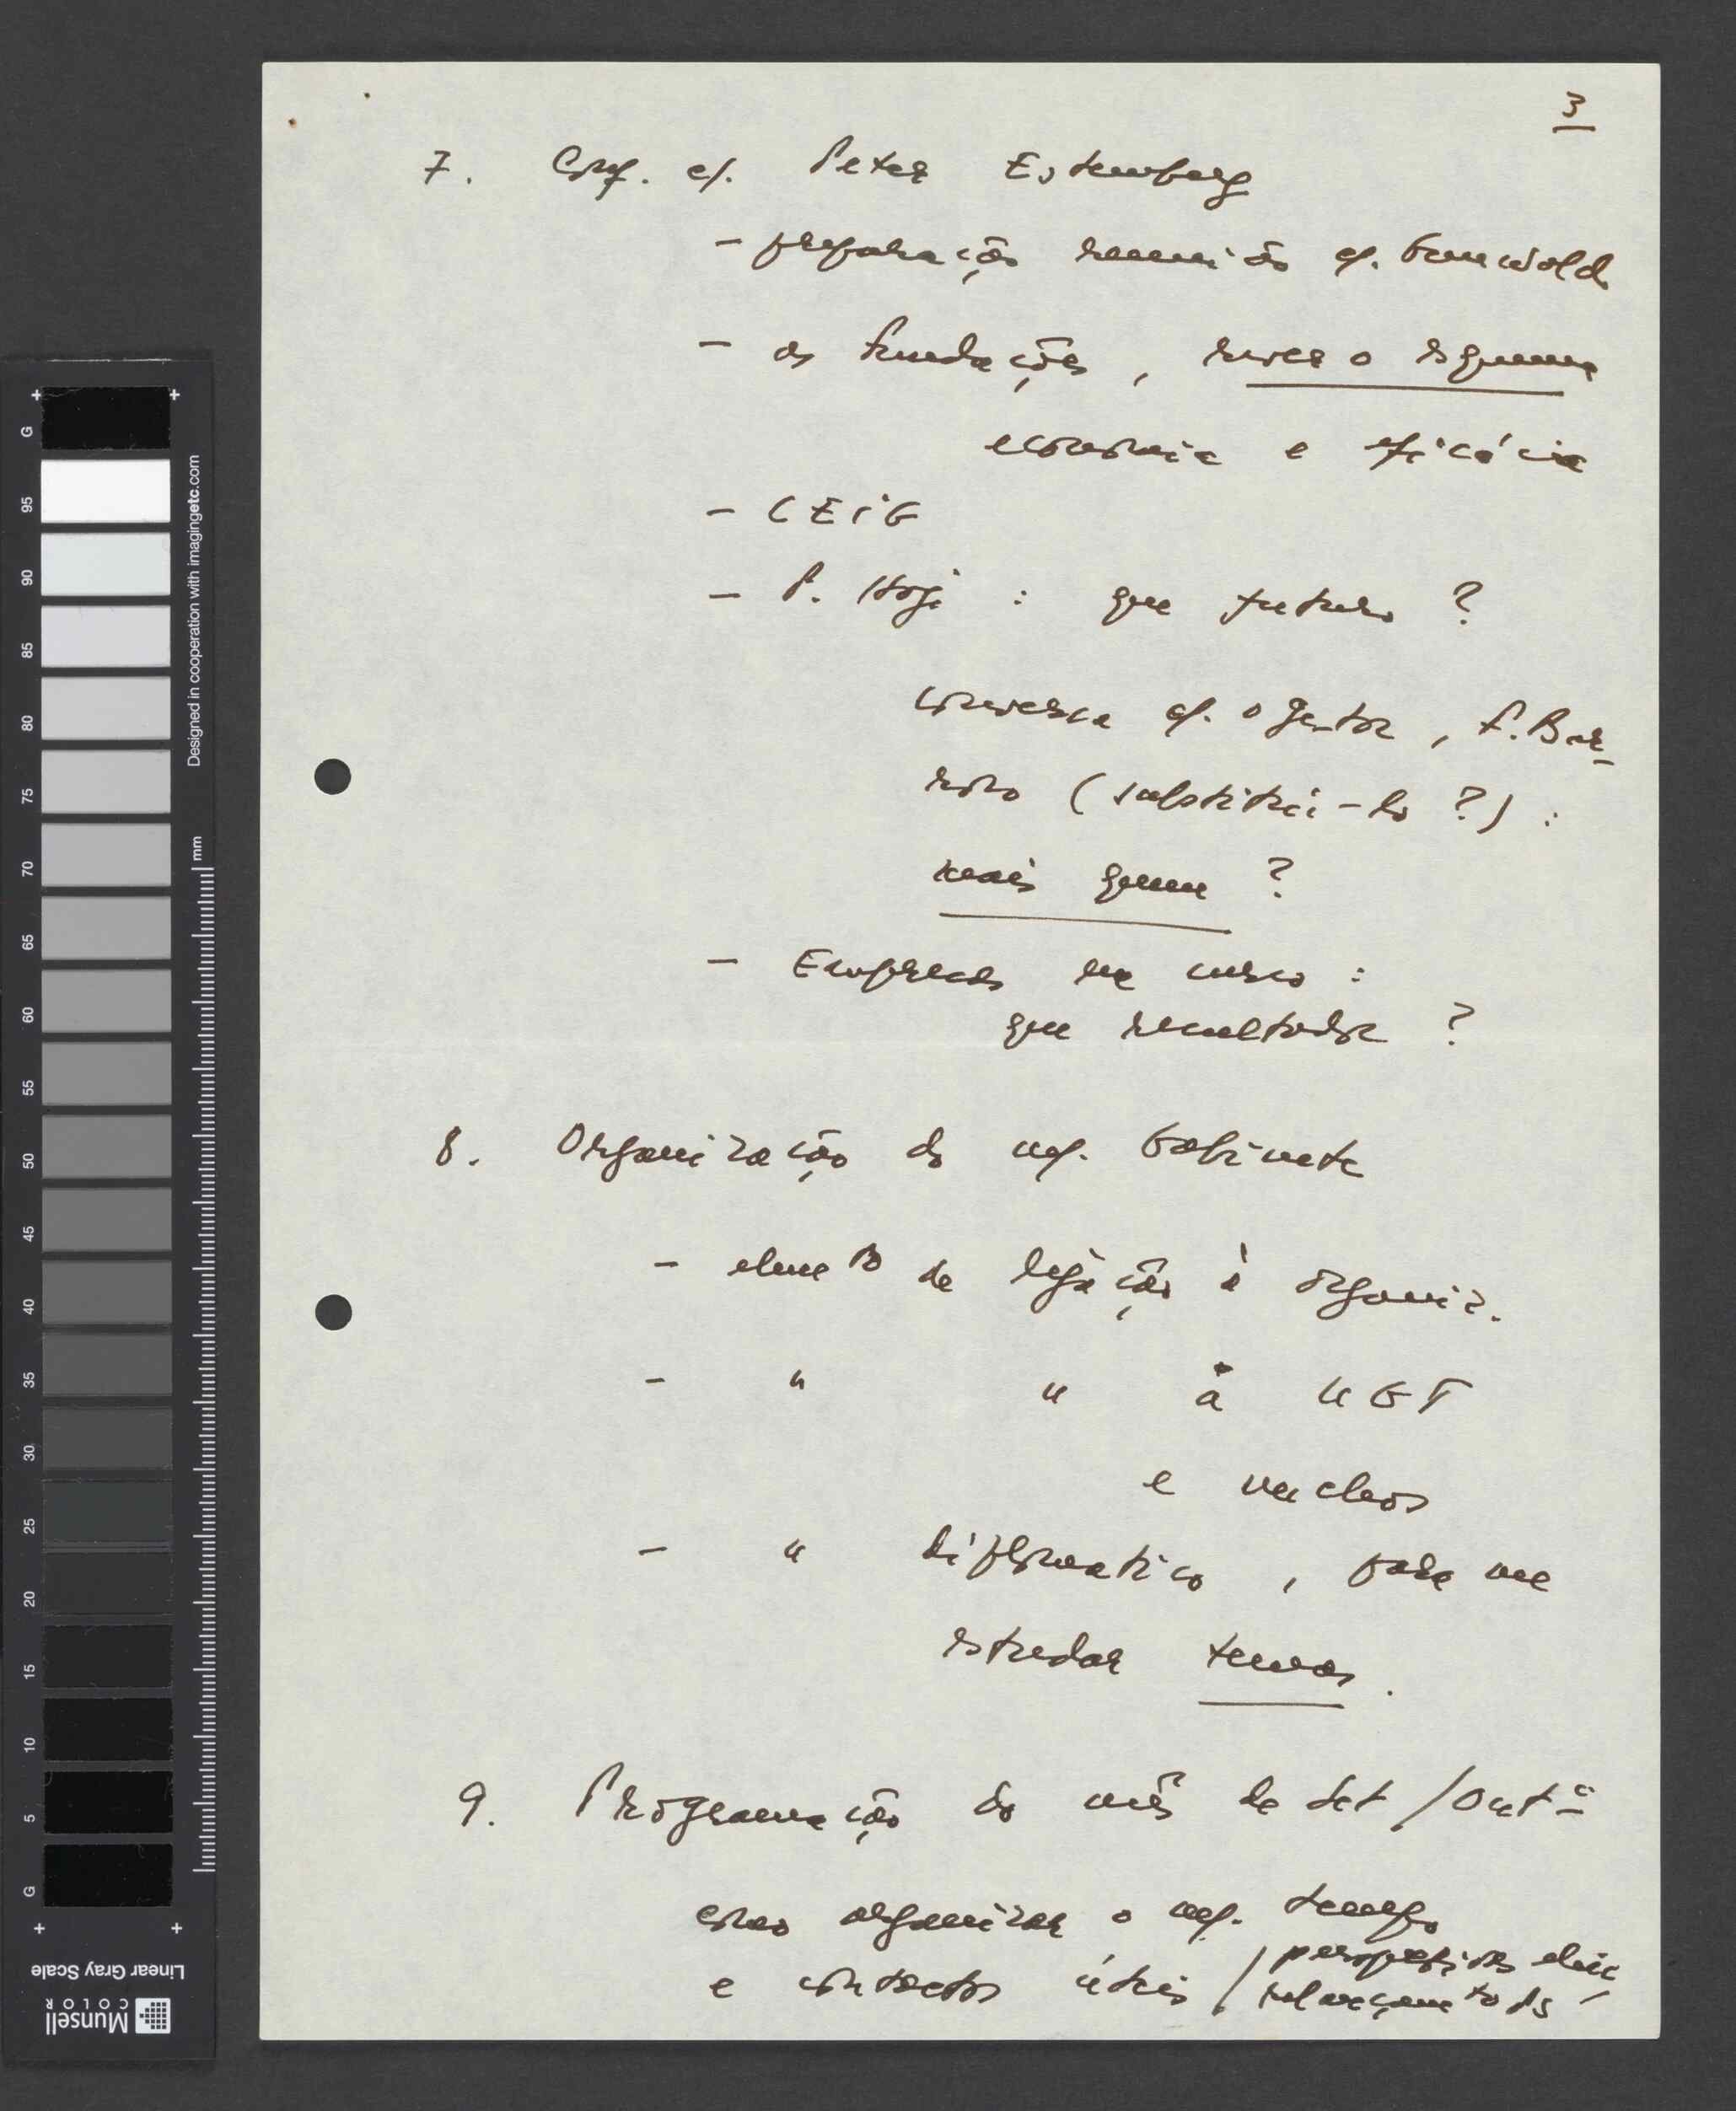 3
7. Conf. c/. Peter Estemberg
- preparação reunião c/. Grunwald
- as Fundações, rever o esquema
economia e eficácia
- CEIG
- P. Hoje : que futuro ?
conversa c/. o gestor, F. Bar-
roso (substitui-lo ?) :
mais quem ?
- Empresas em curso :
que resultados ?
8. Organização do meu Gabinete
- elemto de ligação à organiz.
- " " à UGT
e nucleos
- " diplomatico, para me
estudar temas.
9. Programação do mês de Set/Outº
como organizar o meu tempo
e contactos úteis / perspectivas eleiç.
relançamento PS
G
95
90
85
80
75
70
65
60
55
50
45
40
35
30
25
20
15
10
5
G
Designed in cooperation with imagingetc.com
mm
Linear Gray Scale
Munsell
COLOR